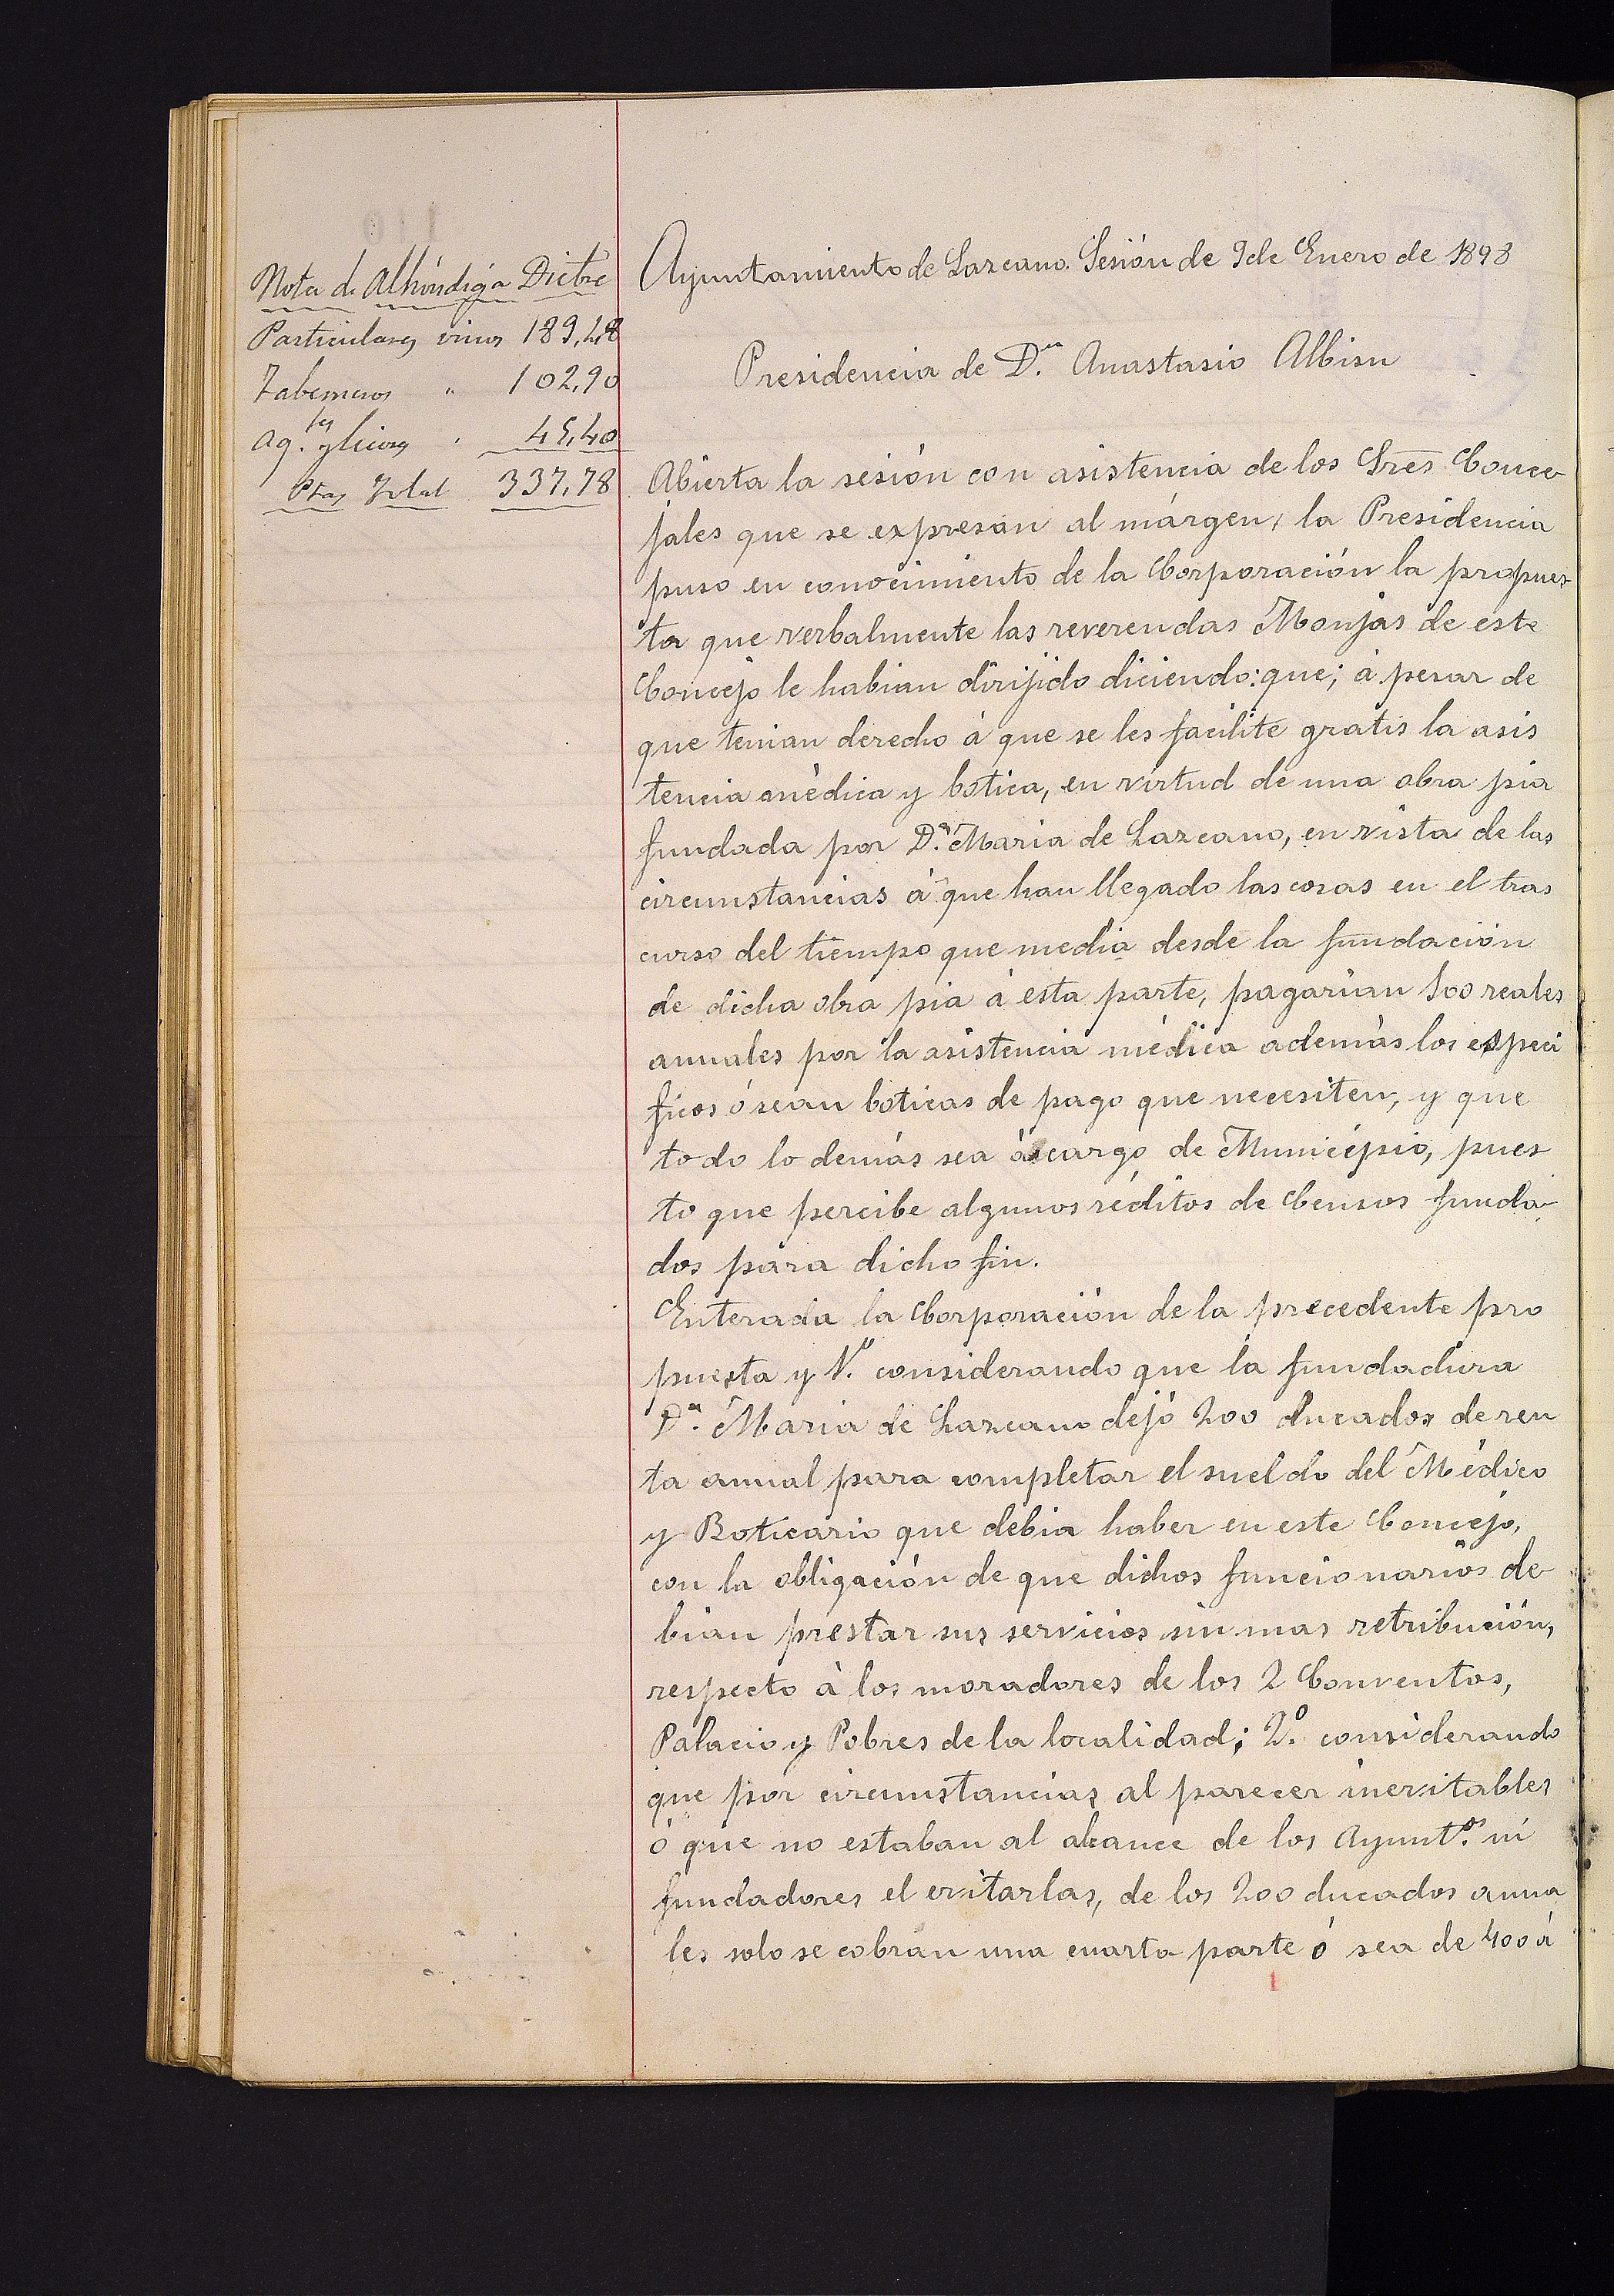 Nota de Alhóndiga Dicbre
Particulares vinos 189,48
Taberneros " 102,90
Ag.tes y licores " 45,40
Ptas Total 337,78
Ayuntamiento de Lazcano. Sesión de 9 de Enero de 1898
Presidencia de D.n Anastasio Albisu
Abierta la sesión con asistencia de los Sres Conce
jales que se expresan al márgen, la Presidencia
puso en conocimiento de la Corporación la propues
ta que verbalmente las reverendas Monjas de este
Concejo le habian dirijido diciendo: que; á pesar de
que tenian derecho á que se les facilite gratis la asis
tencia médica y botica, en virtud de una obra pia
fundada por D.ª Maria de Lazcano, en vista de las
circunstancias á que han llegado las cosas en el tras
curso del tiempo que media desde la fundación
de dicha obra pia á esta parte, pagarian 500 reales
anuales por la asistencia médica además los especí
ficos ó sean boticas de pago que necesiten, y que
todo lo demás sea á cargo de Municipio, pues
to que percibe algunos réditos de Censos funda
dos para dicho fin.
Enterada la Corporación de la precedente pro
puesta y 1.º considerando que la fundadora
D.ª Maria de Lazcano dejó 200 ducados de ren
ta anual para completar el sueldo del Médico
y Boticario que debia haber en este Concejo,
con la obligación de que dichos funcionarios de
bian prestar sus servicios sin mas retribución,
respecto á los moradores de los 2 Conventos,
Palacio y Pobres de la localidad; 2.º considerando
que por circunstancias al parecer inevitables
ó que no estaban al alcance de los Ayunt.os ni
fundadores el evitarlas, de los 200 ducados anua
les solo se cobran una cuarta parte ó sea de 400 á